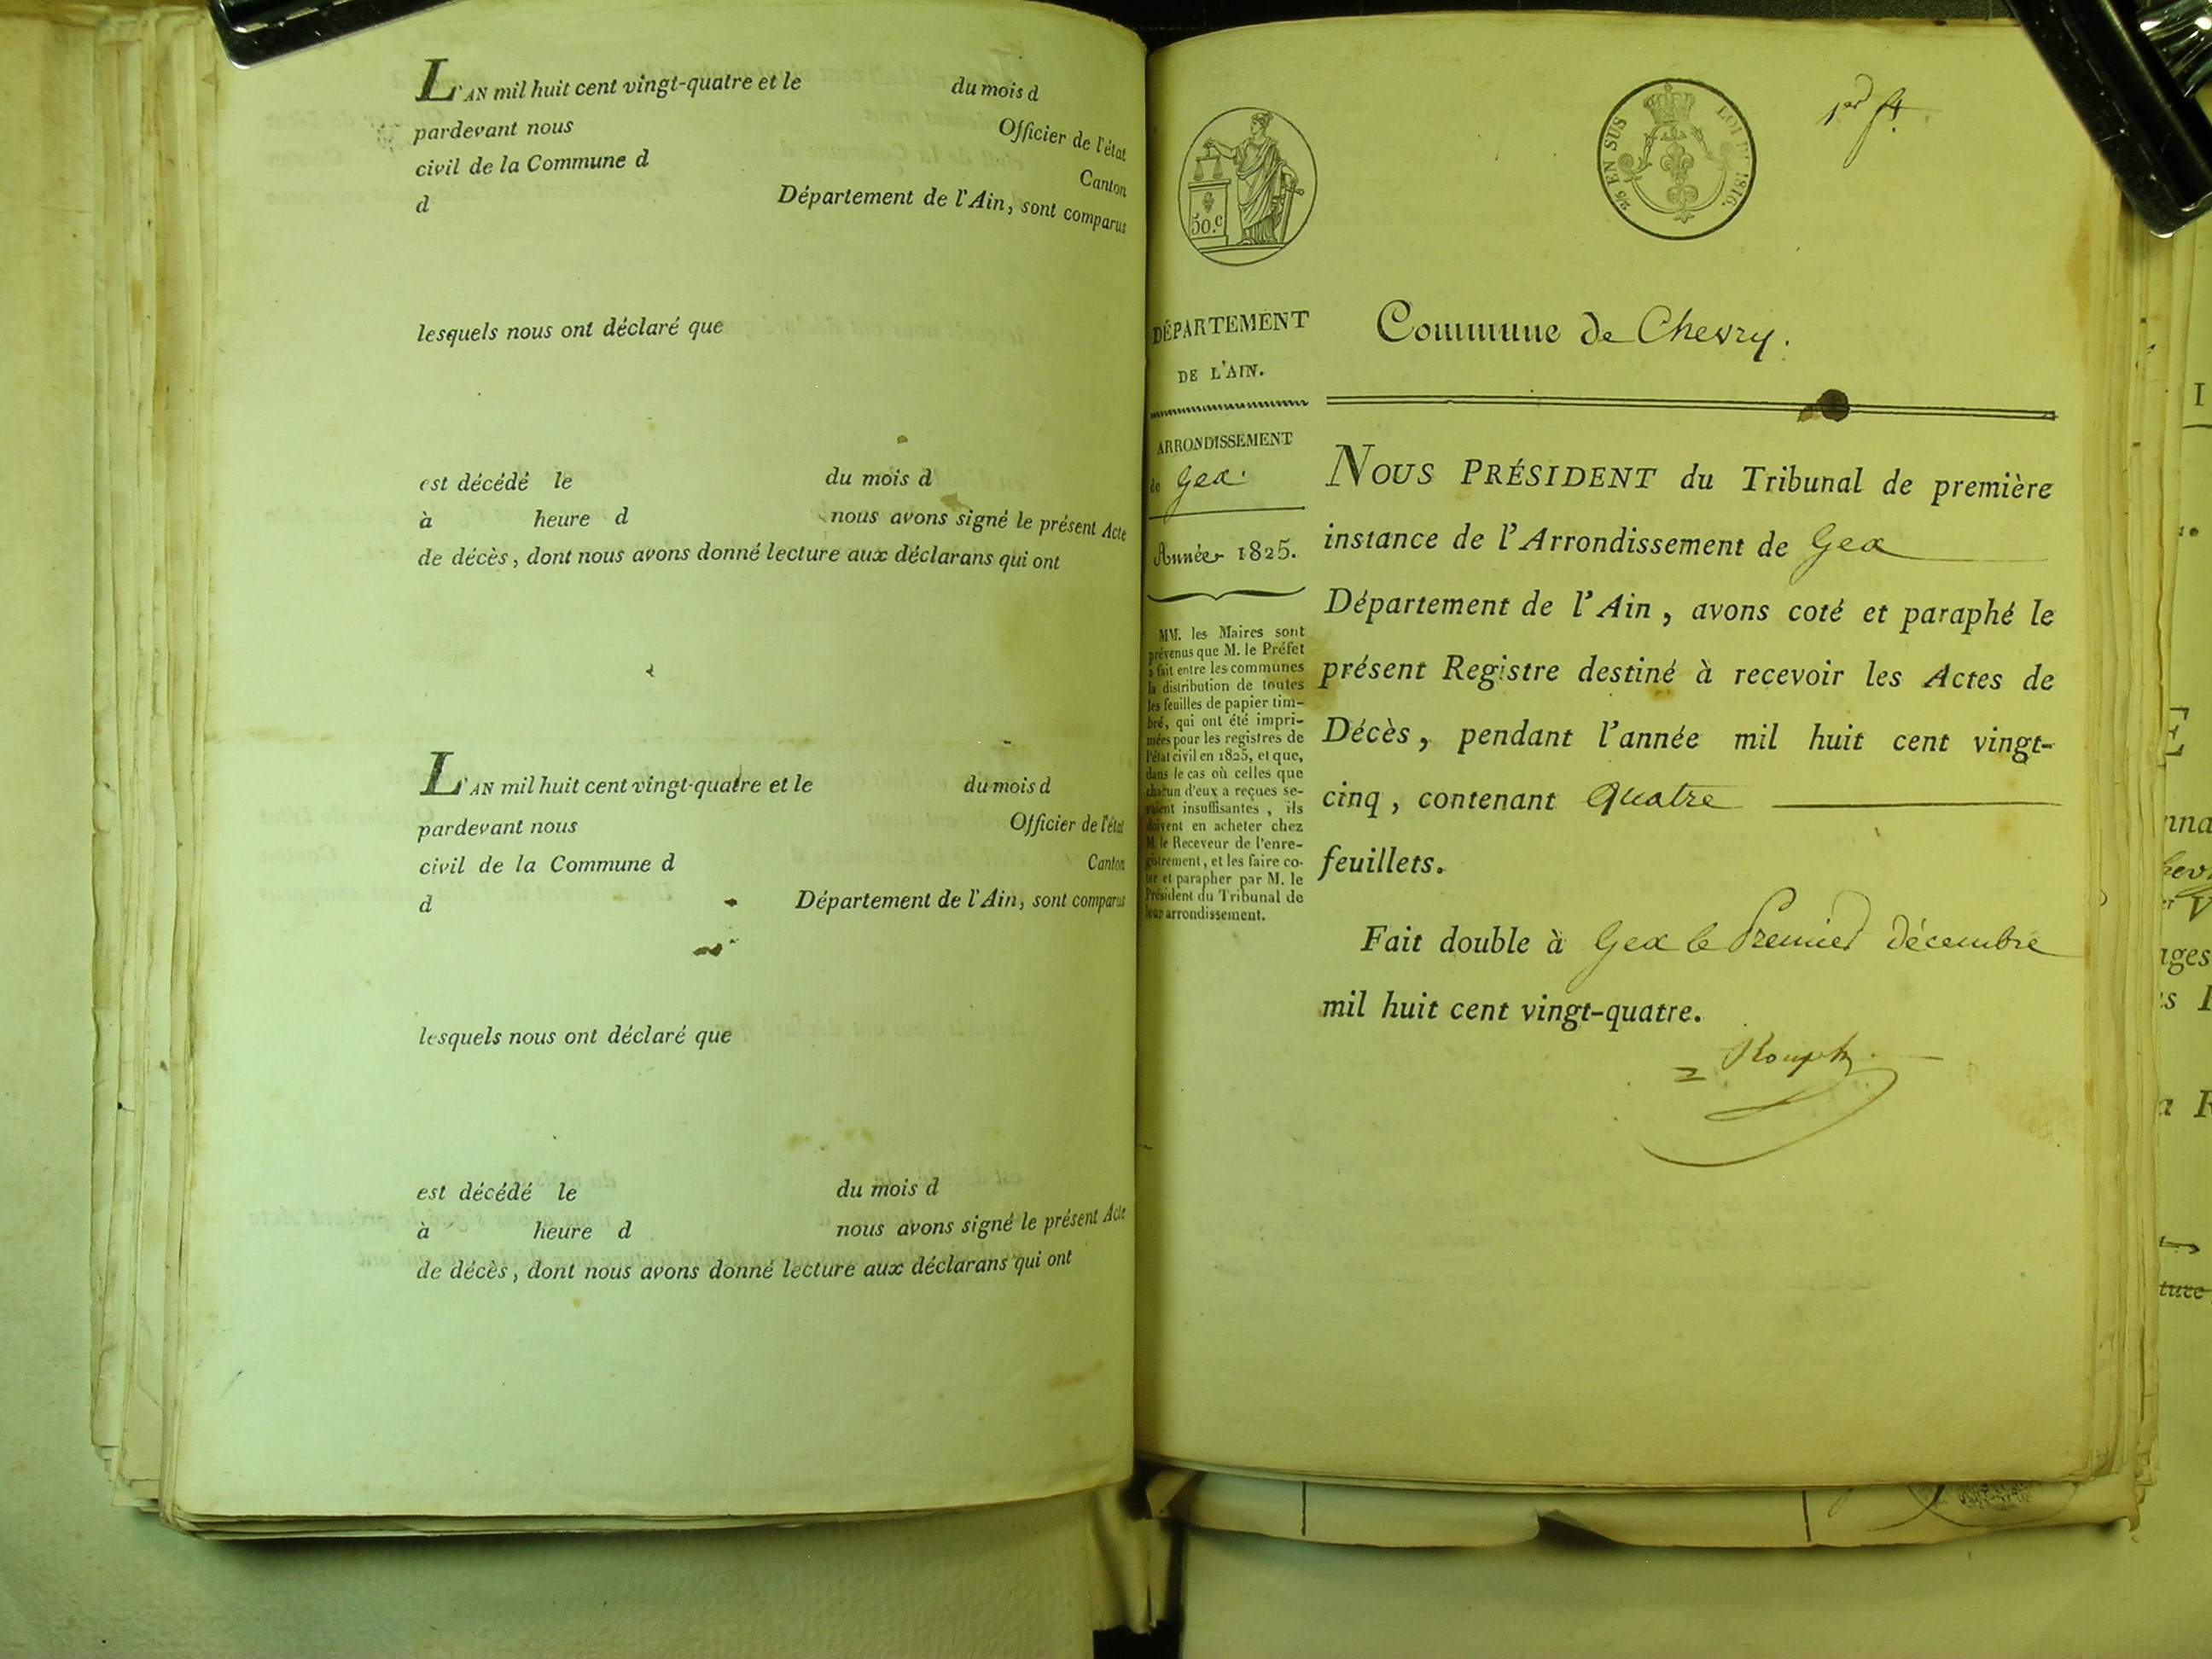 L'AN mil huit cent vingt-quatre et le du mois d
pardevant nous Officier de l'état
civil de la Commune d Canton
d Département de l'Ain, sont comparus
lesquels nous ont déclaré que
est décédé le du mois d
à heure d nous avons signé le présent Acte
de décès, dont nous avons donné lecture aux déclarans qui ont
L'AN mil huit cent vingt-quatre et le du mois d
pardevant nous Officier de l'état
civil de la Commune d Canton
d Département de l'Ain, sont comparus
lesquels nous ont déclaré que
est décédé le du mois d
à heure d nous avons signé le présent Acte
de décès, dont nous avons donné lecture aux déclarans qui ont
50.c
EN SUS LOI DE 1816.
1er
DÉPARTEMENT
DE L'AIN.
ARRONDISSEMENT
de Gex.
Année 1825.
MM. les Maires sont
prévenus que M. le Préfet
a fait entre les communes
la distribution de toutes
les feuilles de papier tim-
bré, qui ont été impri-
mées pour les registres de
l'état civil en 1825, et que,
dans le cas où celles que
chacun d'eux a reçues se-
raient insuffisantes, ils
doivent en acheter chez
M. le Receveur de l'enre-
gistrement, et les faire co-
ter et parapher par M. le
Président du Tribunal de
leur arrondissement.
Commune de Chevry.
NOUS PRÉSIDENT du Tribunal de première
instance de l'Arrondissement de Gex
Département de l'Ain, avons coté et paraphé le
présent Registre destiné à recevoir les Actes de
Décès, pendant l'année mil huit cent vingt-
cinq, contenant Quatre
feuillets.
Fait double à Gex le Premier décembre
mil huit cent vingt-quatre.